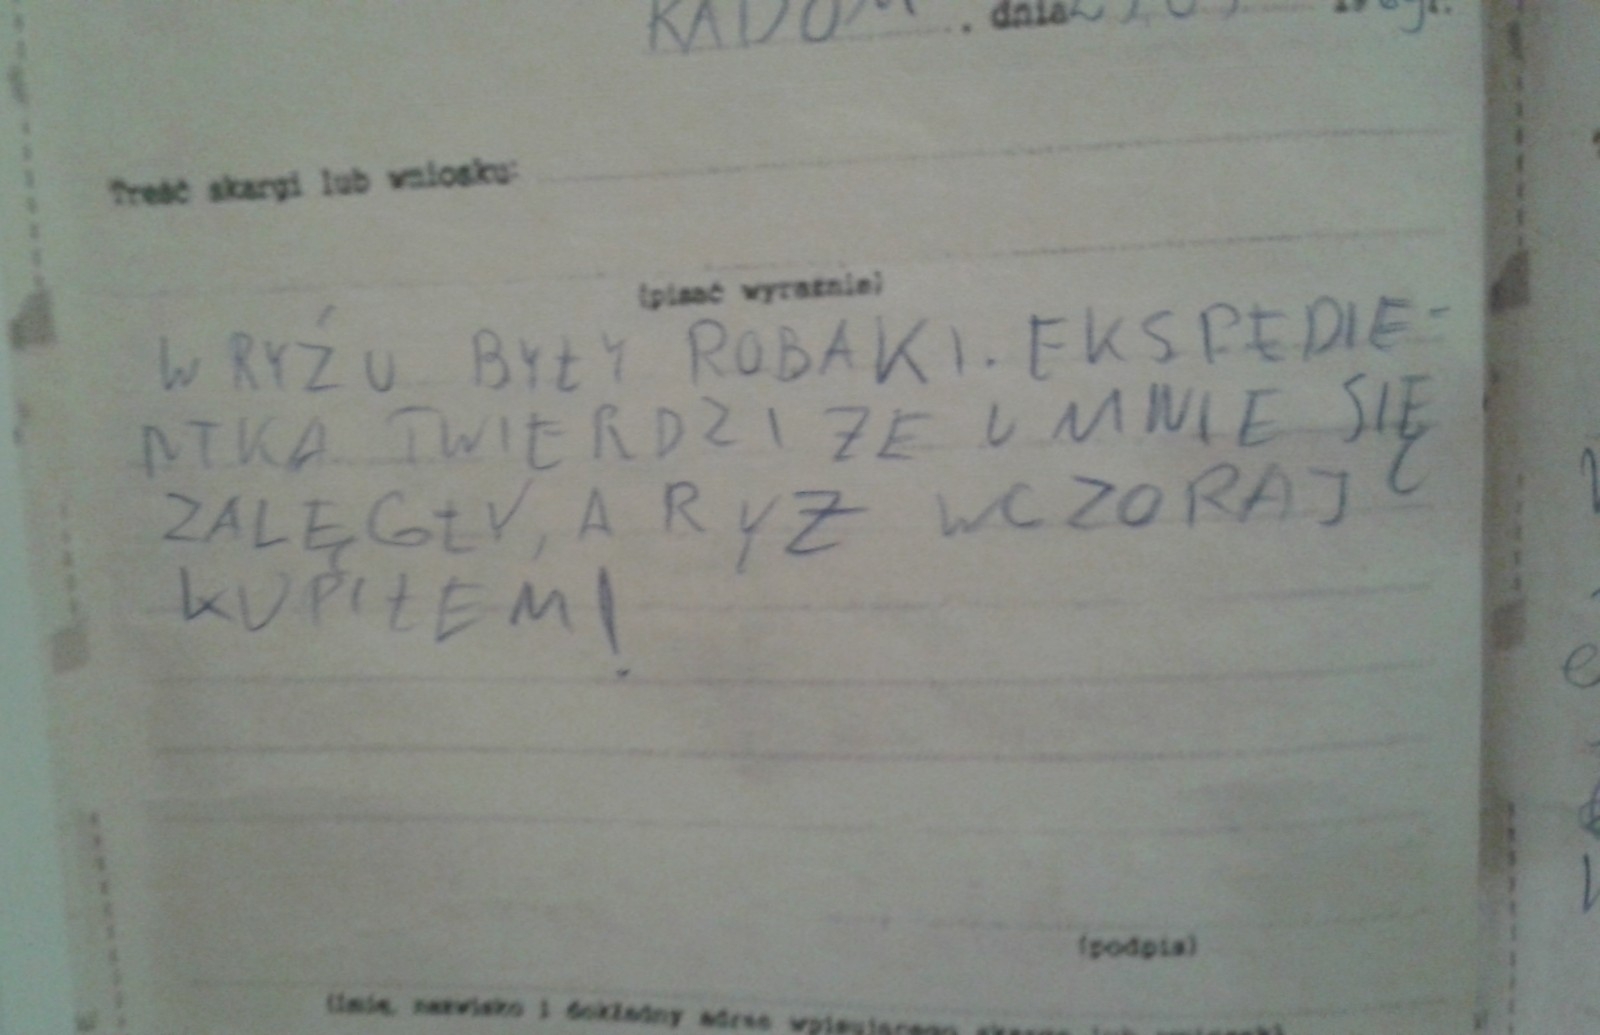 RADOM . dnia
Treść skargi lub wniosku:
(pisać wyraźnie)
W RYŻU BYŁY ROBAKI. EKSPEDIE-
NTKA TWIERDZI ZE U MNIE SIĘ
ZALĘGŁY, A RYZ WCZORAJ
KUPIŁEM!
(podpis)
(imię, nazwisko i dokładny adres wpisującego skargę lub wniosek)